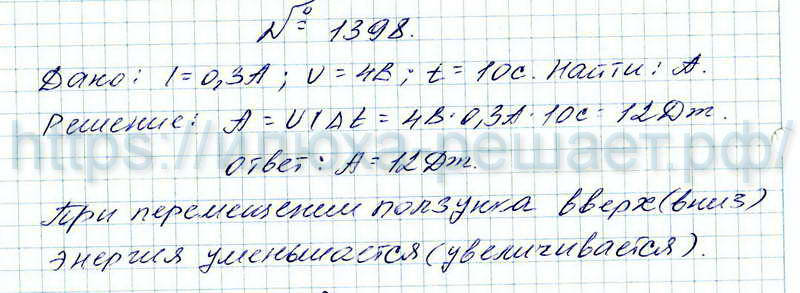 № 1398.
Дано: I=0,3А; U=4В; t=10с. Найти: А.
Решение: А=UIΔt=4В·0,3А·10с=12Дж.
https://июха-решает.рф/
ответ: А=12Дж.
При перемещении ползунка вверх(вниз)
энергия уменьшается(увеличивается).